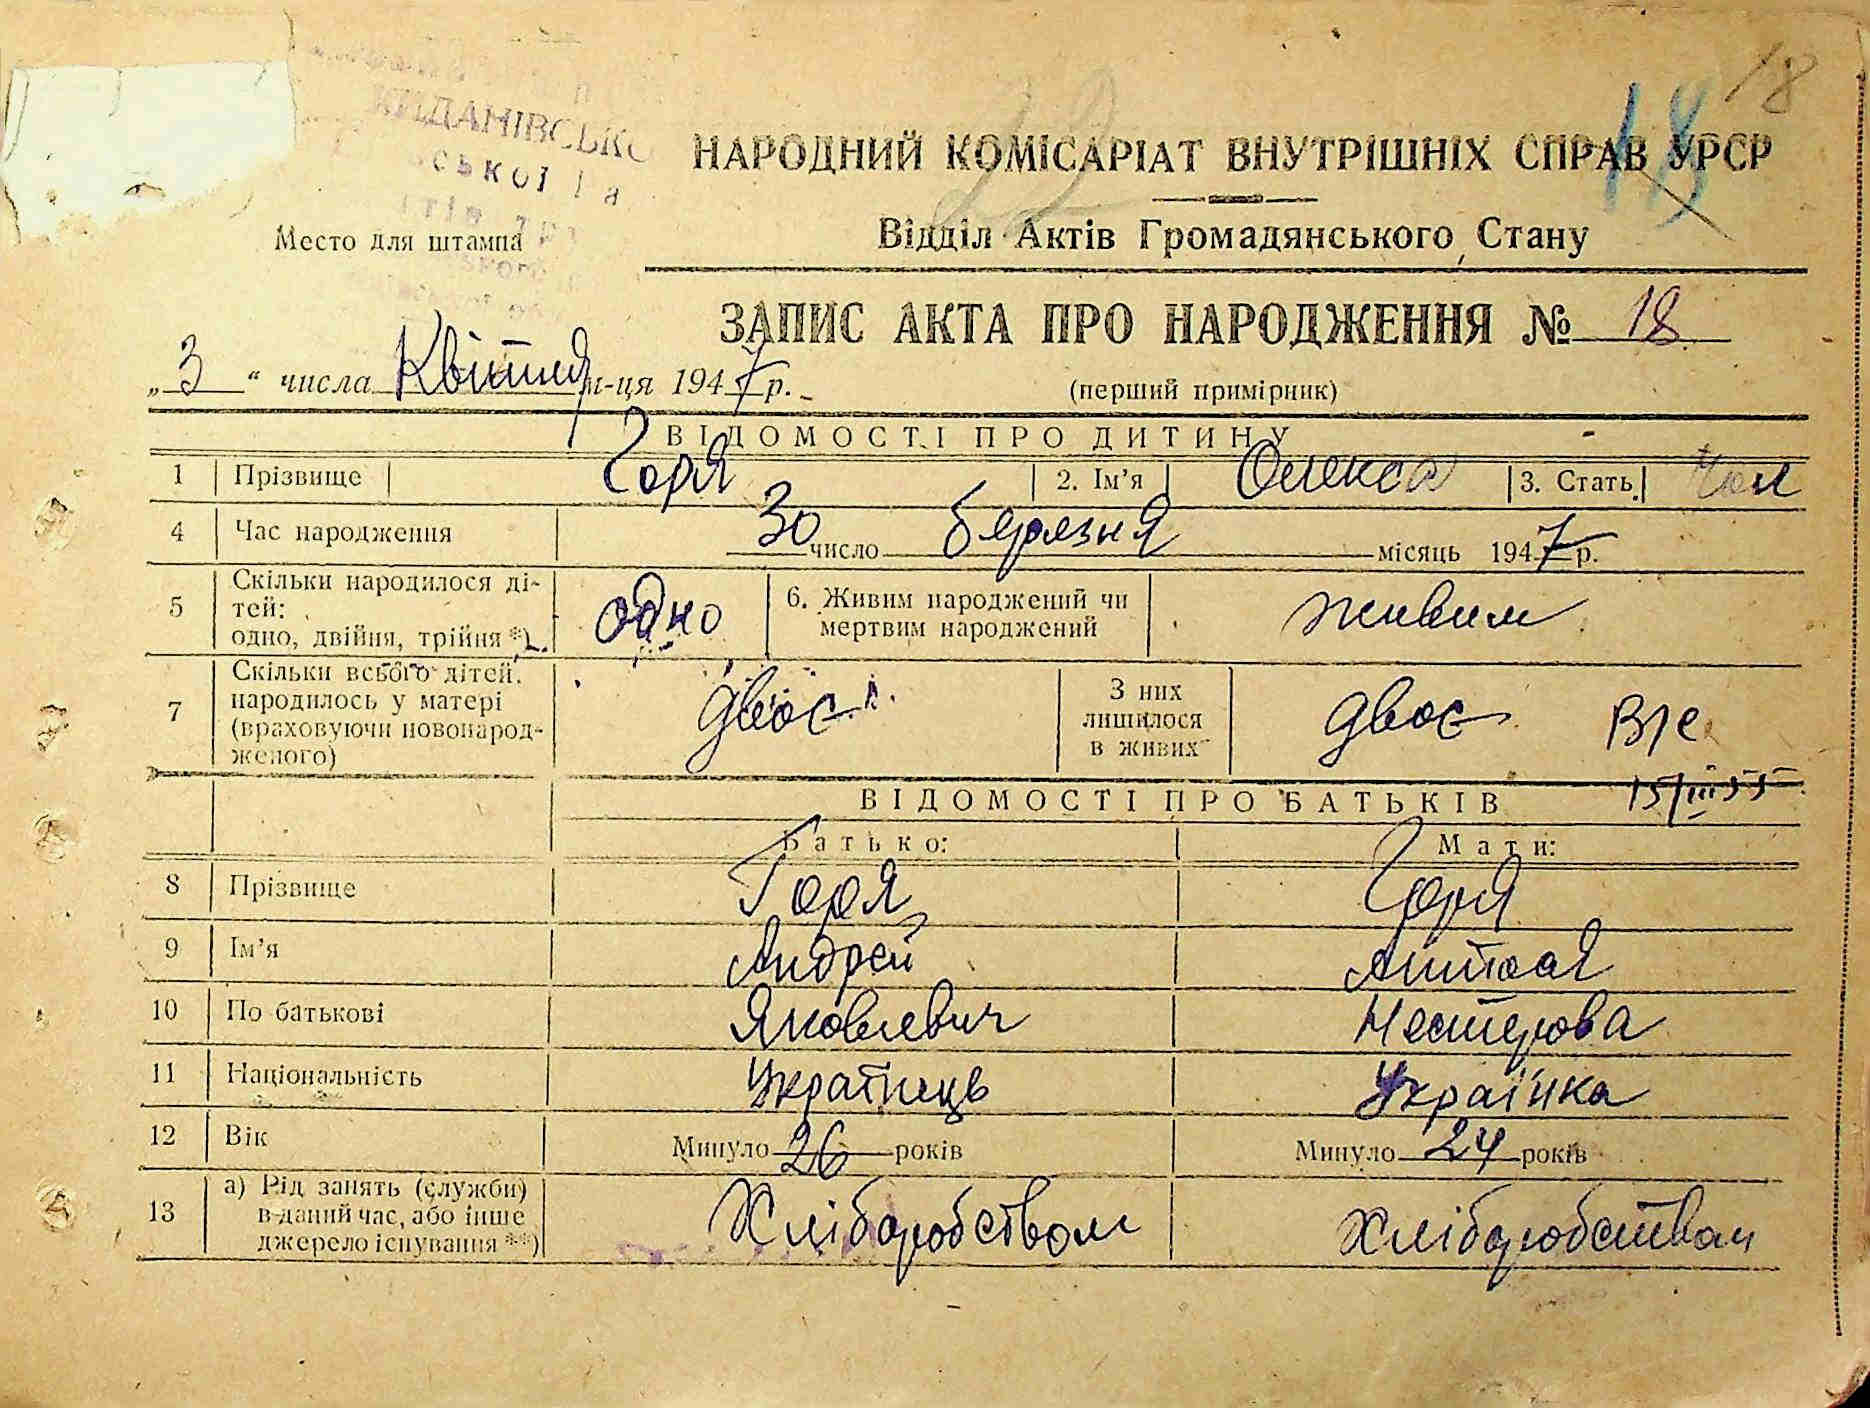 18
КИДАНІВСЬКО
ської
НАРОДНИЙ КОМІСАРІАТ ВНУТРІШНІХ СПРАВ УРСР
18
22
Место для штампа
Відділ Актів Громадянського Стану
ЗАПИС АКТА ПРО НАРОДЖЕННЯ № 18
„3“ числа Квітня м-ця 1947 р.
(перший примірник)
ВІДОМОСТІ ПРО ДИТИНУ
1 Прізвище Горя 2. Ім’я Олекса 3. Стать Чол
4 Час народження 30 число березня місяць 1947 р.
5 Скільки народилося ді-
тей:
одно, двійня, трійня *) одно 6. Живим народжений чи
мертвим народжений живим
7 Скільки всього дітей
народилось у матері
(враховуючи новонарод-
женого) двоє З них
лишилося
в живих двоє
15/III 55
ВІДОМОСТІ ПРО БАТЬКІВ
Батько: Мати:
8 Прізвище Горя Горя
9 Ім’я Андрей
10 По батькові Яковлевич Нестерова
11 Національність Українець Українка
12 Вік Минуло 26 років Минуло 24 років
13 а) Рід занять (служби)
в даний час, або інше
джерело існування **) Хліборобством Хліборобством